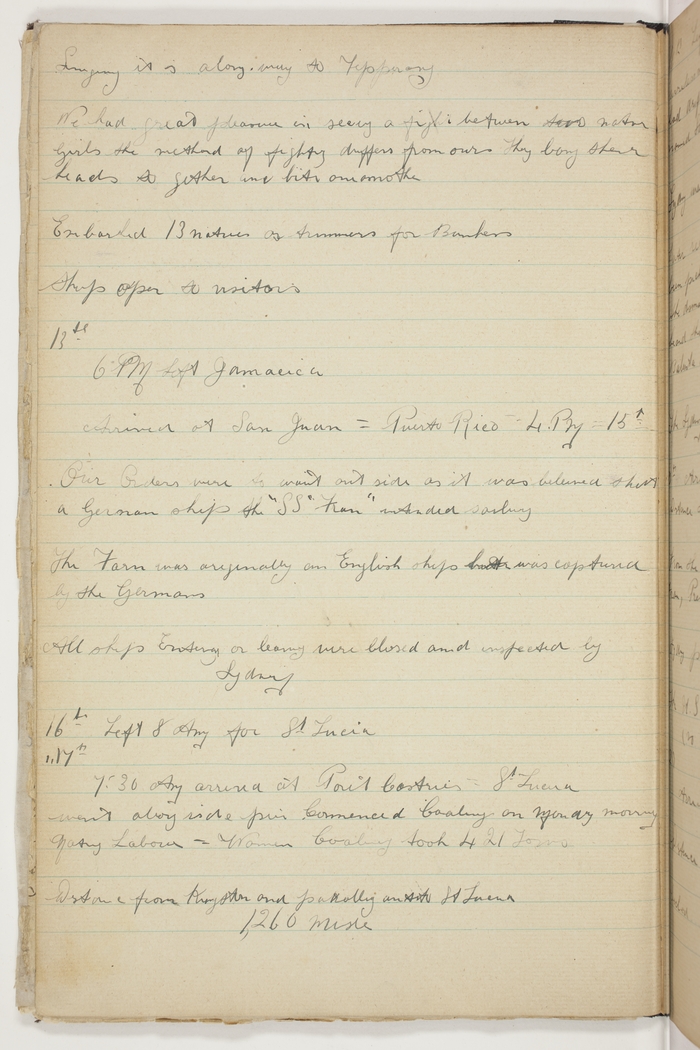 Singing it is a long way to Tipperary
We had great pleasure in seeing a fight between two native
girls the method of fighting differs from ours They bang their
heads to gether and bite one another
Embarked 13 natives as trimmers for Bunkers
Ship open to visitors
13th
6 PM left Jamaica
Arrived at San Juan = Puerto Rico - 4. PM - 15th
Our Orders were to wait out side as it was believed that
a German ship the "SS" Farn" intended sailing
The Farn was originally an English ship was captured
by the Germans
All ships Entering or leaving were closed and inspected by
Sydney
16th Left 8 AM for St Lucia
" 17th
7.30 AM arrived at Port Castries = St Lucia
went along side pier Commenced Coaling on Monday morning
Native Labour = Women Coaling took 421 Tons
Distance from Kingston and St Lucia
1,260 miles